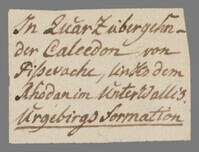 In Quarz übergehn=
der Calcedon von
Pißevache, links dem
Rhodan im Unter Wallis.
Urgebirgs formation